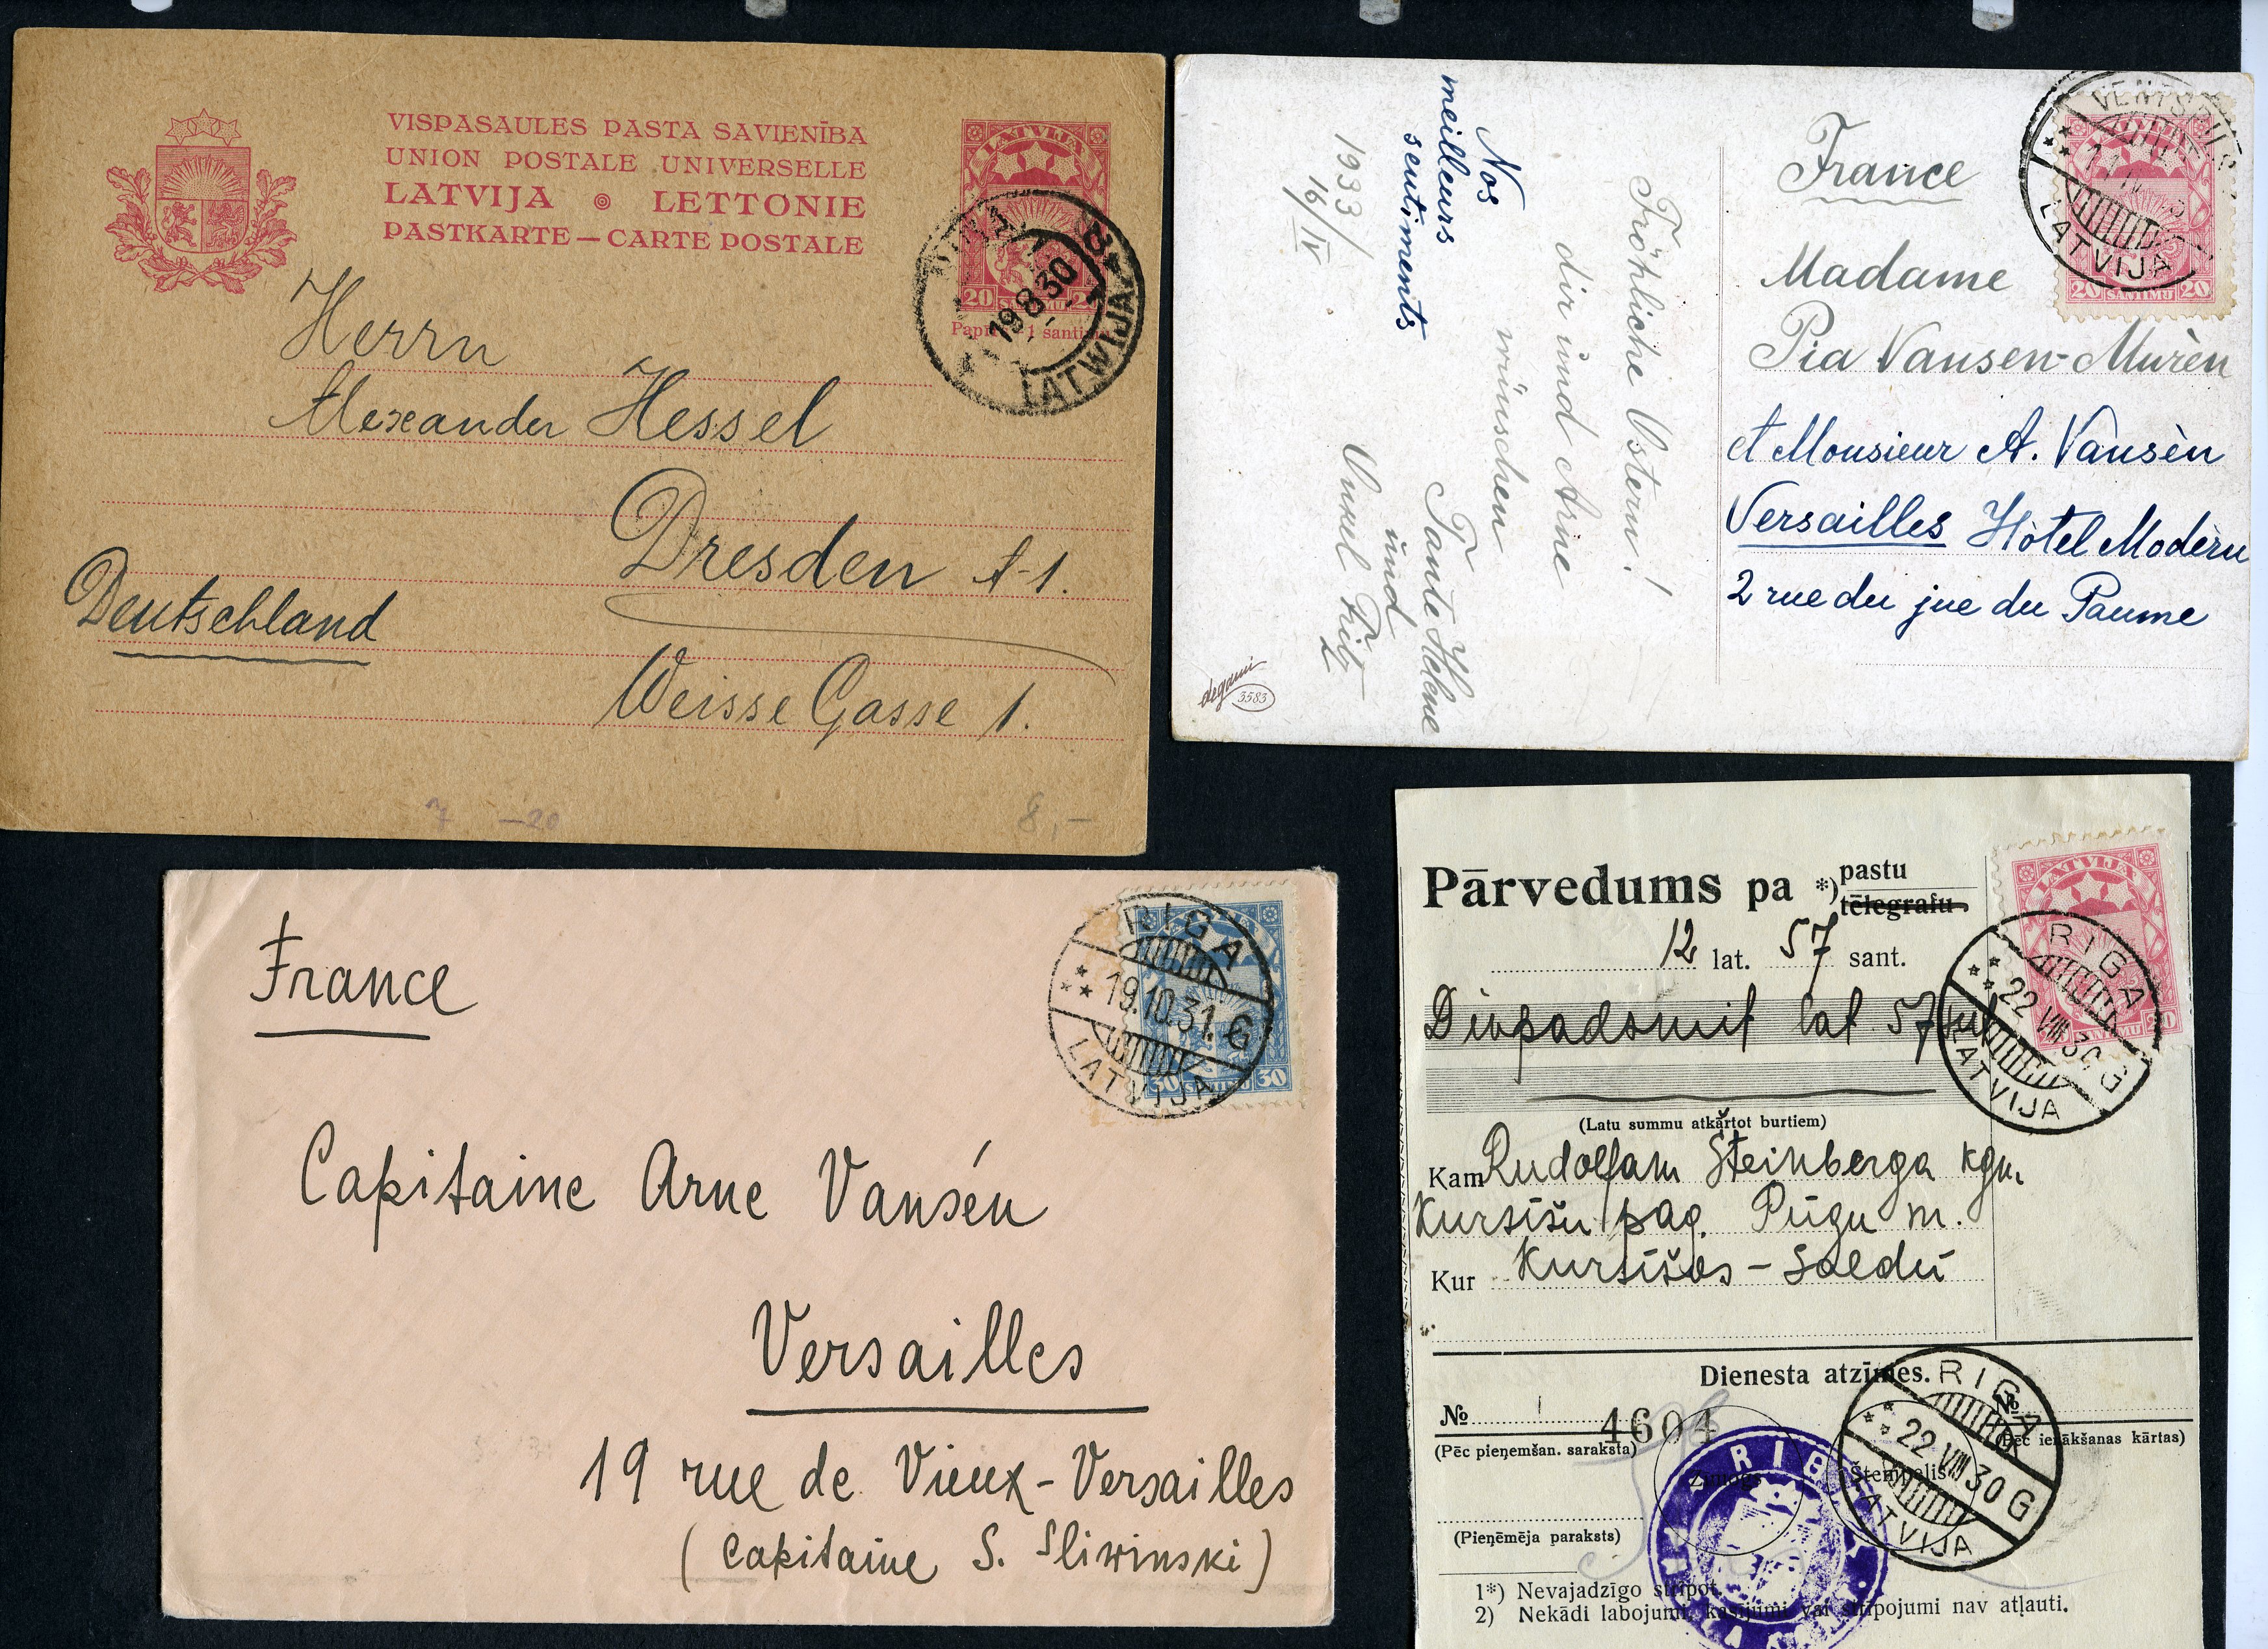 VISPASAULES PASTA SAVIENĪBA
UNION POSTALE UNIVERSELLE
LATVIJA LETTONIE
PASTKARTE — CARTE POSTALE
LATVIJA
20 20
Papīrs 1 santīms
19 8 30
LATWIJA
Herrn
Alexander Hessel
Dresden A-1.
Deutschland
Weisse Gasse 1.
7 —20
8,—
Nos
meilleurs
sentiments
1933/
16/IV
Fröhliche Ostern!
dir und Arne
wünschen
Tante Helene
und
Onkel Fritz
degami
3583
VENTSPILS
LATVIJA
20 SANTIMU 20
France
Madame
Pia Vansen-Murèn
et Monsieur A. Vansèn
Versailles Hôtel Modèrn
2 rue du jue du Paume
LATVIJA
30 SANTIMU 30
RIGA
19.10.31. G
LATVIJA
France
Capitaine Arne Vansén
Versailles
19 rue de Vieux-Versailles
(Capitaine S. Sliwinski)
Pārvedums pa *) pastu
tēlegrafu
12 lat. 57 sant.
Divpadsmit lat 57 sut
(Latu summu atkārtot burtiem)
Kam Rudolfam Šteinberga kgm.
Kursīšu pag. Pūgu m.
Kur Kursīšos - Saldū
LATVIJA
20
RIGA
22 VIII 30 G
LATVIJA
Dienesta atzīmes.
№ 4604 №
(Pēc pieņemšan. saraksta) (Pēc ienākšanas kārtas)
Zīmogs Štempelis
RIGA
22 VIII 30 G
LATVIJA
RIG
(Pieņēmēja paraksts)
1*) Nevajadzīgo stripot.
2) Nekādi labojumi, kasījumi vai stripojumi nav atļauti.